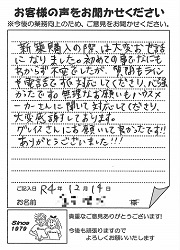 お客様の声をお聞かせください
※今後の業務向上のため、ご意見をお聞かせください。
新築購入の際は大変お世話
になりました。初めての事なのになにも
わからず不安でしたが、質問もライン
や電話ですぐ対応してくださり、心強
かったです。無理なお願いもハウスメ
ーカーさんに聞いて対応してくださり、
大変感謝しております。
グレイスさんにお願いして良かったです!!
ありがとうございました!!!
ご記入日 R4年 12月 14日
お名前
Since
1970
貴重なご意見ありがとうございます!
今後も頑張りますので
よろしくお願いいたします